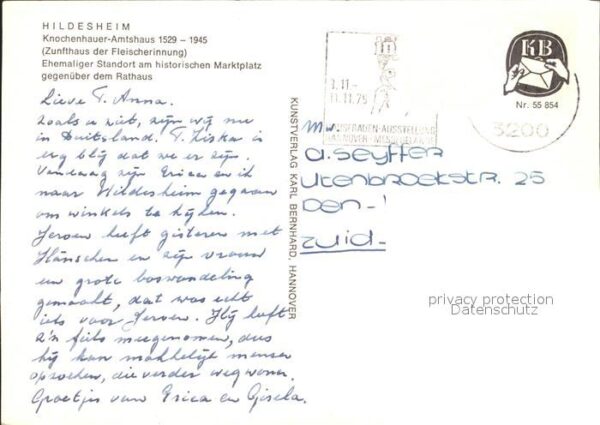 HILDESHEIM
Knochenhauer-Amtshaus 1529 – 1945
(Zunfthaus der Fleischerinnung)
Ehemaliger Standort am historischen Marktplatz
gegenüber dem Rathaus
Lieve T. Anna.
Zoals u ziet, zijn wij nu
in Duitsland. T. Liska is
erg blij dat we er zijn.
Vandaag zijn Erica en ik
naar Hildesheim gegaan
om winkels te kijken.
Jeroen heeft gisteren met
Hänschen en zijn vrouw
een grote boswandeling
gemaakt, dat was echt
iets voor Jeroen. Hij heeft
z'n fiets meegenomen, dus
hij kan makkelijk mensen
opzoeken, die verder weg wonen.
Groetjes van Erica en Gisela.
KUNSTVERLAG KARL BERNHARD, HANNOVER
KB
Nr. 55 854
1.11.-
11.11.75
AUSSTELLUNG
HANNOVER-MESSEGELÄNDE
3200
Mw.
A. Seyffer
Utenbroekstr. 25
Den-
Zuid-
privacy protection
Datenschutz